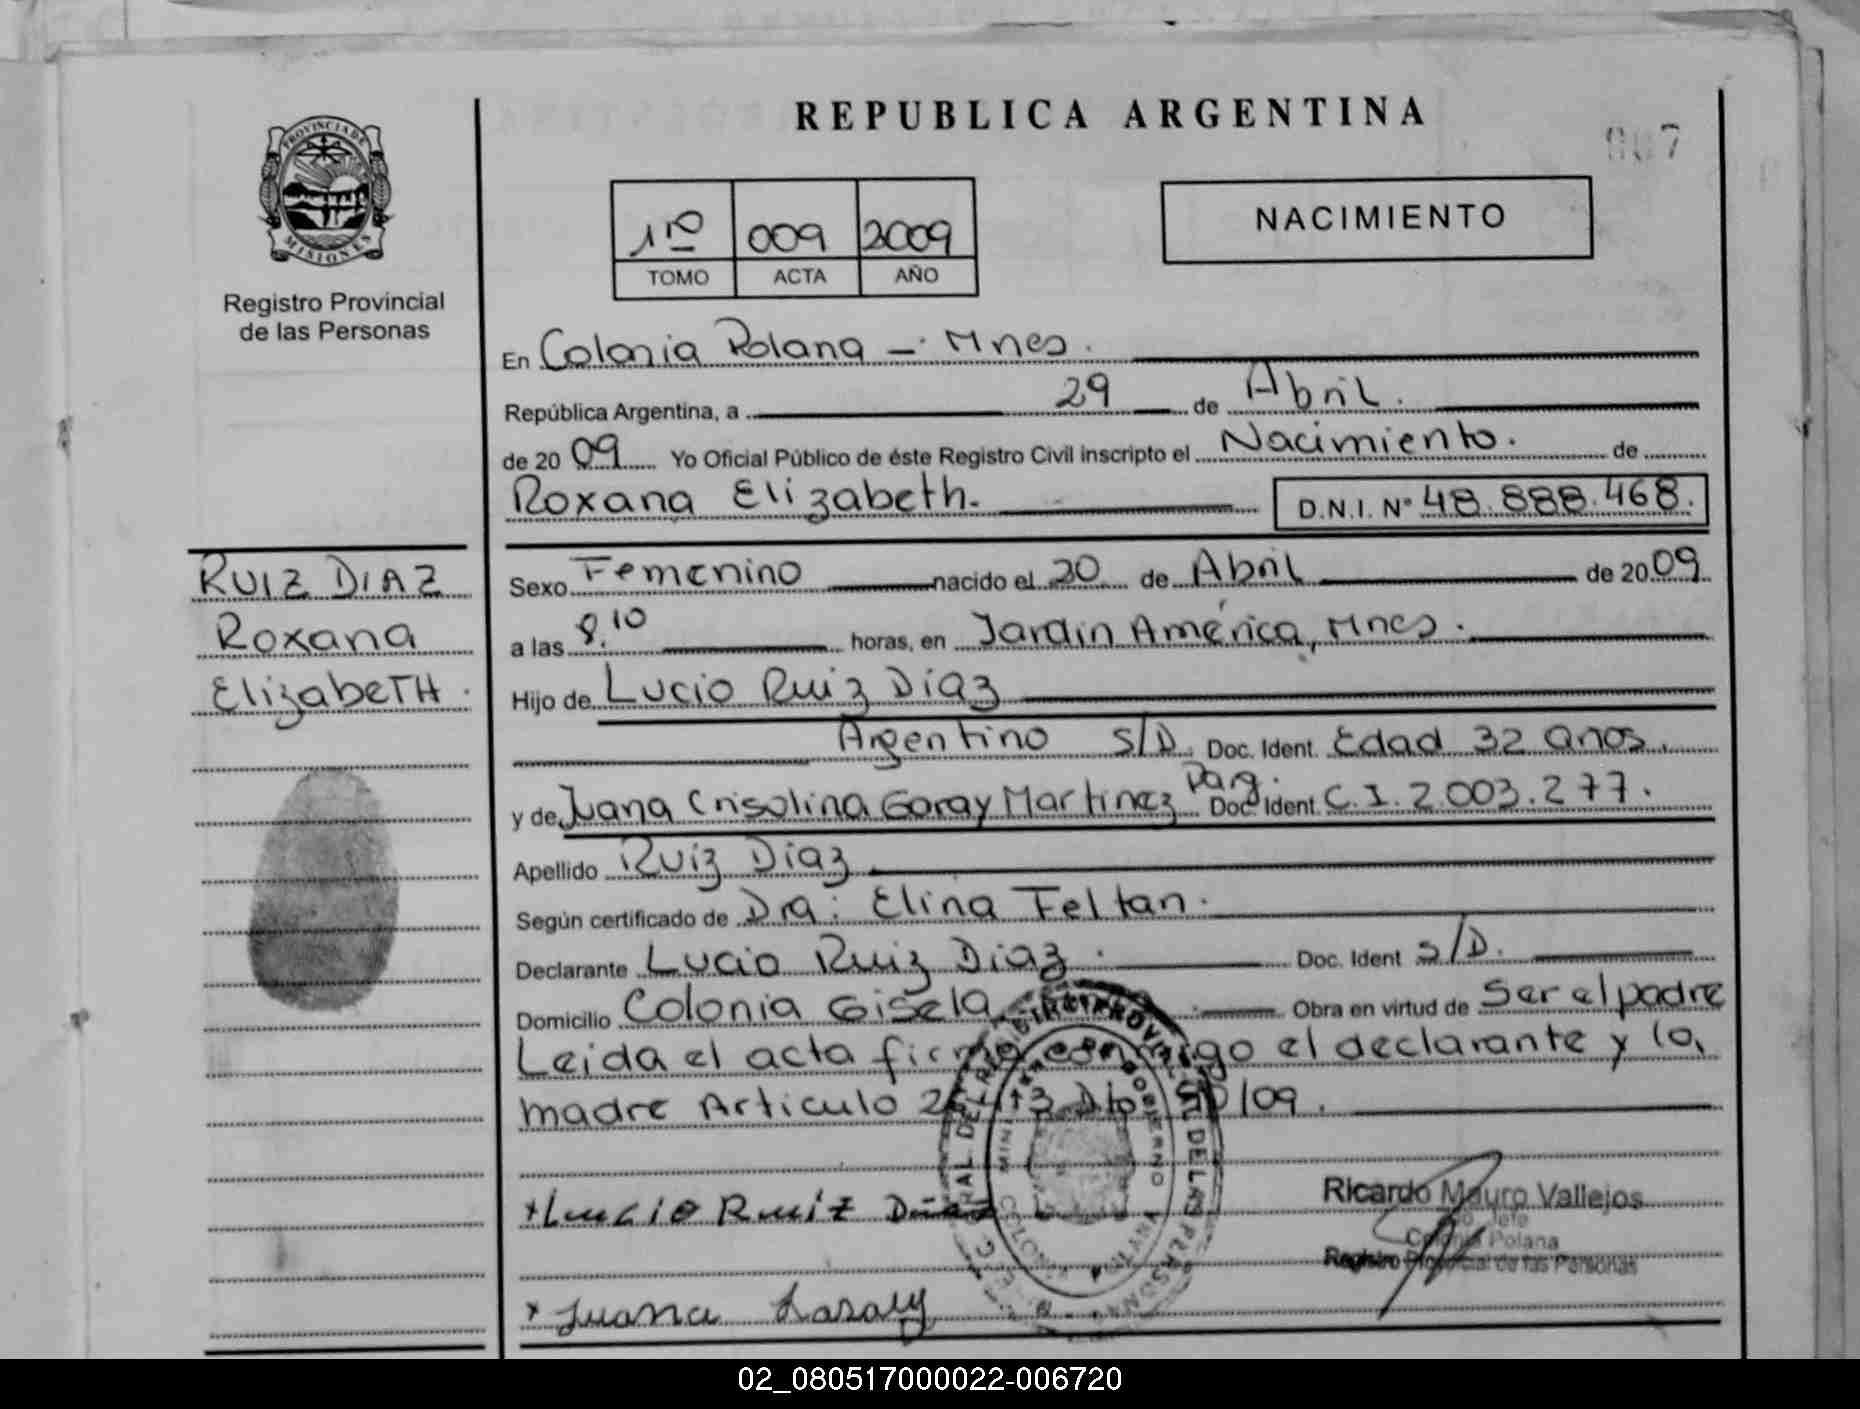 REPUBLICA ARGENTINA
007
PROVINCIA DE MISIONES
Registro Provincial
de las Personas
NACIMIENTO
1ro 009 2009
TOMO ACTA AÑO
En Colonia Polana - Mnes.
República Argentina, a 29 de Abril.
de 20 09 Yo Oficial Público de éste Registro Civil inscripto el Nacimiento. de
Roxana Elizabeth. D.N.I. Nº 48.888.468.
RUIZ DIAZ
Roxana
ElizabeTH.
Sexo Femenino nacido el 20 de Abril de 20 09
a las 8.10 horas, en Jardin América, Mnes.
Hijo de Lucio Ruiz Diaz
Argentino S/D. Doc. Ident. Edad 32 años.
y de Juana Crisolina Garay Martinez Parg. Doc. Ident. C.I. 2.003.277.
Apellido Ruiz Diaz
Según certificado de Dra: Elina Feltan.
Declarante Lucio Ruiz Diaz. Doc. Ident S/D.
Domicilio Colonia Gisela Obra en virtud de Ser el padre
Leida el acta firma conmigo el declarante y la
madre Articulo /09.
+Lucio Ruiz Diaz
Ricardo Mauro Vallejos
Jefe
Colonia Polana
Registro Provincial de las Personas
+ Juana Garay
02_080517000022-006720